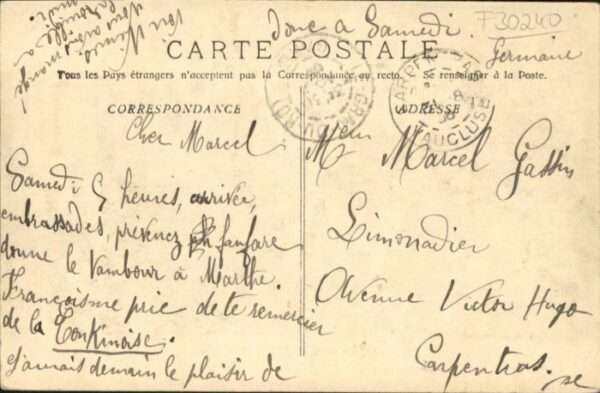 donc à Samedi.
F30240
Germaine
CARTE POSTALE
Tous les Pays étrangers n'acceptent pas la Correspondance au recto. Se renseigner à la Poste.
CORRESPONDANCE
ADRESSE
VAUCLUSE
Cher Marcel
Samedi 5 heures, arrivée,
embrassades, prévenez fanfare
donne le tambour à Marthe.
Françoisme prie de te remercier
de la Tonkinoise.
J'aurais demain le plaisir de
Marcel Gassin
Limonadier
Avenue Victor Hugo
Carpentras